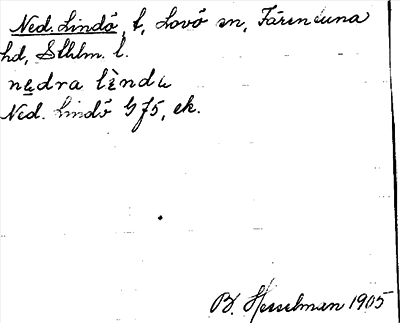 Ned. Lindö, t, Lovö sn, Färentuna
hd, Sthlm. l.
nędra lìndɯ
Ned. Lindö G J5, ek.
B. Hesselman 1905